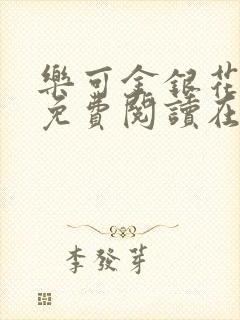 樂可金銀花
免費閱讀在
李發芽